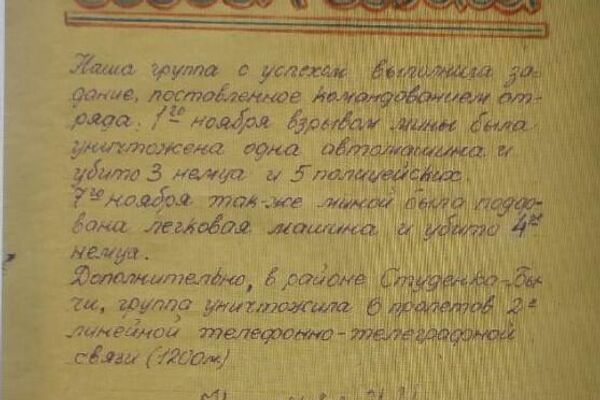 Наша группа с успехом выполнила за-
дание, поставленное командованием от-
ряда. 1го ноября взрывом мины была
уничтожена одна автомашина и
убито 3 немца и 5 полицейских.
7го ноября так-же миной была подор-
вана легковая машина и убито 4
немца.
Дополнительно, в районе Студенка-Бы-
чи, группа уничтожила 6 пролетов 2х
линейной телефонно-телеграфной
связи (1200м)